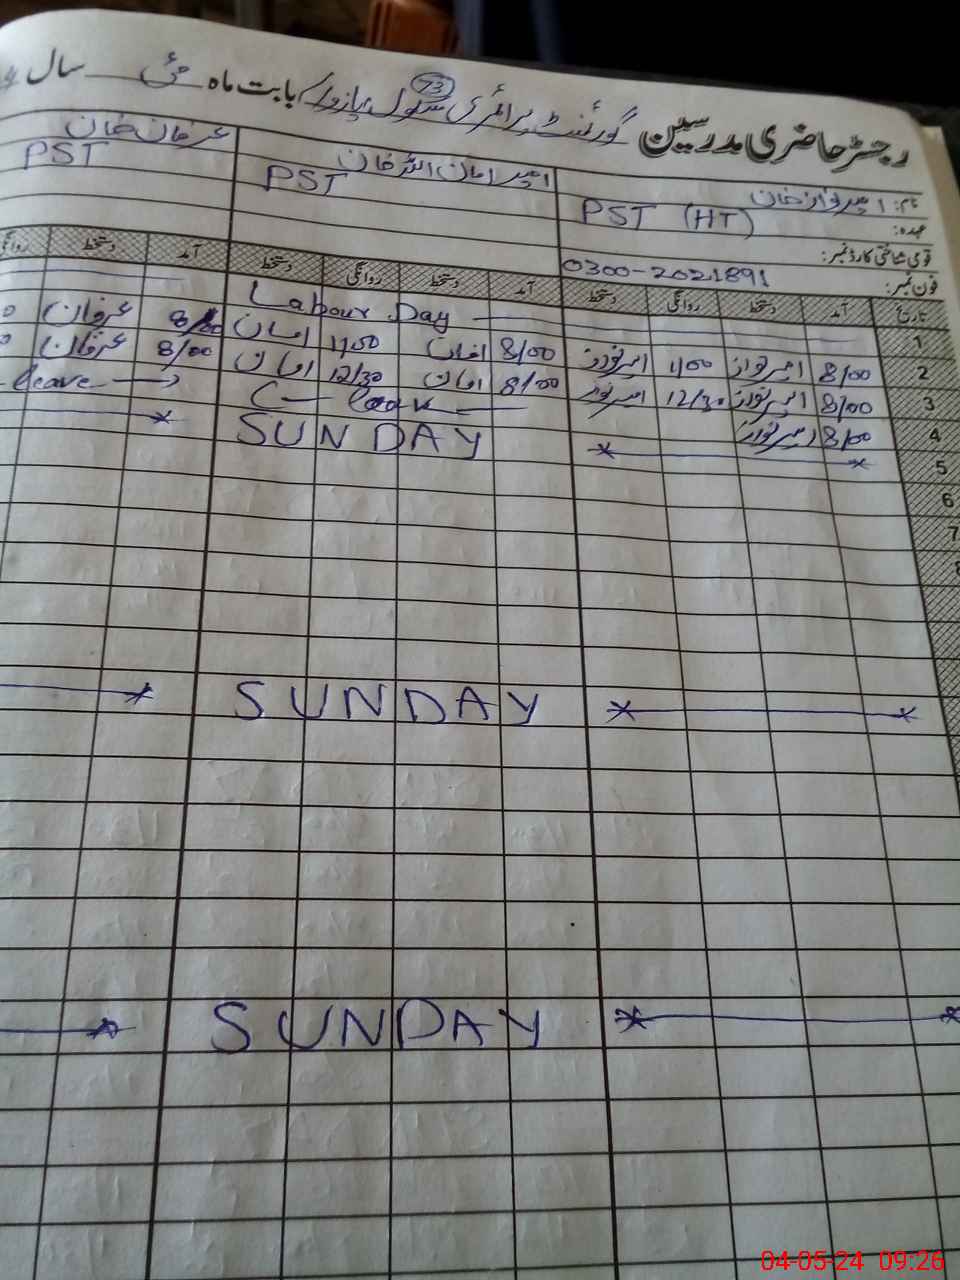 رجسٹر حاضری مدرسین گورنمنٹ پرائمری سکول بازوار بابت ماہ مئی سال
73
نام: امیر نواز خان
امیر امان اللہ خان
عرفان خان
عہدہ: PST (HT)
PST
PST
قومی شناختی کارڈ نمبر:
فون نمبر: 0300-2021891
تاریخ آمد دستخط روانگی دستخط آمد دستخط روانگی دستخط آمد دستخط روانگی
1 Labour Day
2 8/00 امیر نواز 1/00 امیر نواز 8/00 امان 1/00 امان 8/00 عرفان
3 8/00 امیر نواز 12/30 امیر نواز 8/00 امان 12/30 امان 8/00 عرفان
4 8/00 امیر نواز C- leave leave
5 SUNDAY
6
7
8
SUNDAY
SUNDAY
04-05-24 09:26